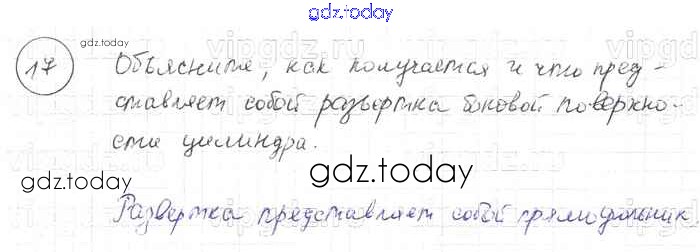 gdz.today
17
gdz.today
Объясните, как получается и что пред-
ставляет собой развертка боковой поверхно-
сти цилиндра.
gdz.today
gdz.today
Развертка представляет собой прямоугольник.